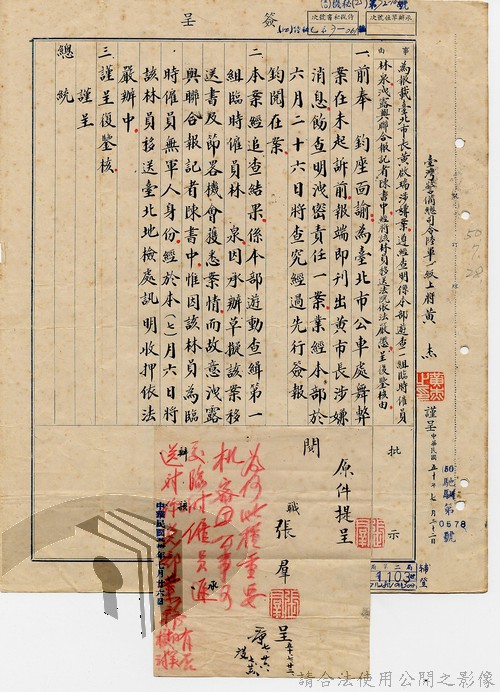 簽呈
臺灣警備總司令陸軍一級上將黃杰 謹呈 中華民國五十年七月二十二日
事由
為報載臺北市長黃啟瑞涉嫌案遵經查明係本部遊查一組臨時僱員
林泉洩露與聯合報記者陳書中經將該林員移送法院依法嚴懲呈復鑒核由
一、前奉 鈞座面諭為臺北市公車處舞弊
案在未起訴前報端即刊出黃市長涉嫌
消息飭查明洩密責任一案業經本部於
六月二十六日將查究經過先行簽報
鈞閱在案
二、本案經追查結果係本部遊動查緝第一
組臨時僱員林 泉因承辦草擬該案移
送書及節畧機會獲悉案情而故意洩露
與聯合報記者陳書中惟因該林員為臨
時僱員無軍人身份經於本(七)月六日將
該林員移送臺北地檢處訊明收押依法
嚴辦中
三、謹呈復鑒核
謹呈
總統
批示
原件提呈
閱
職 張羣 呈
張羣
為何此種重要
機密
中華民國五十年七月廿六日
0578號
1103
請合法使用公開之影像